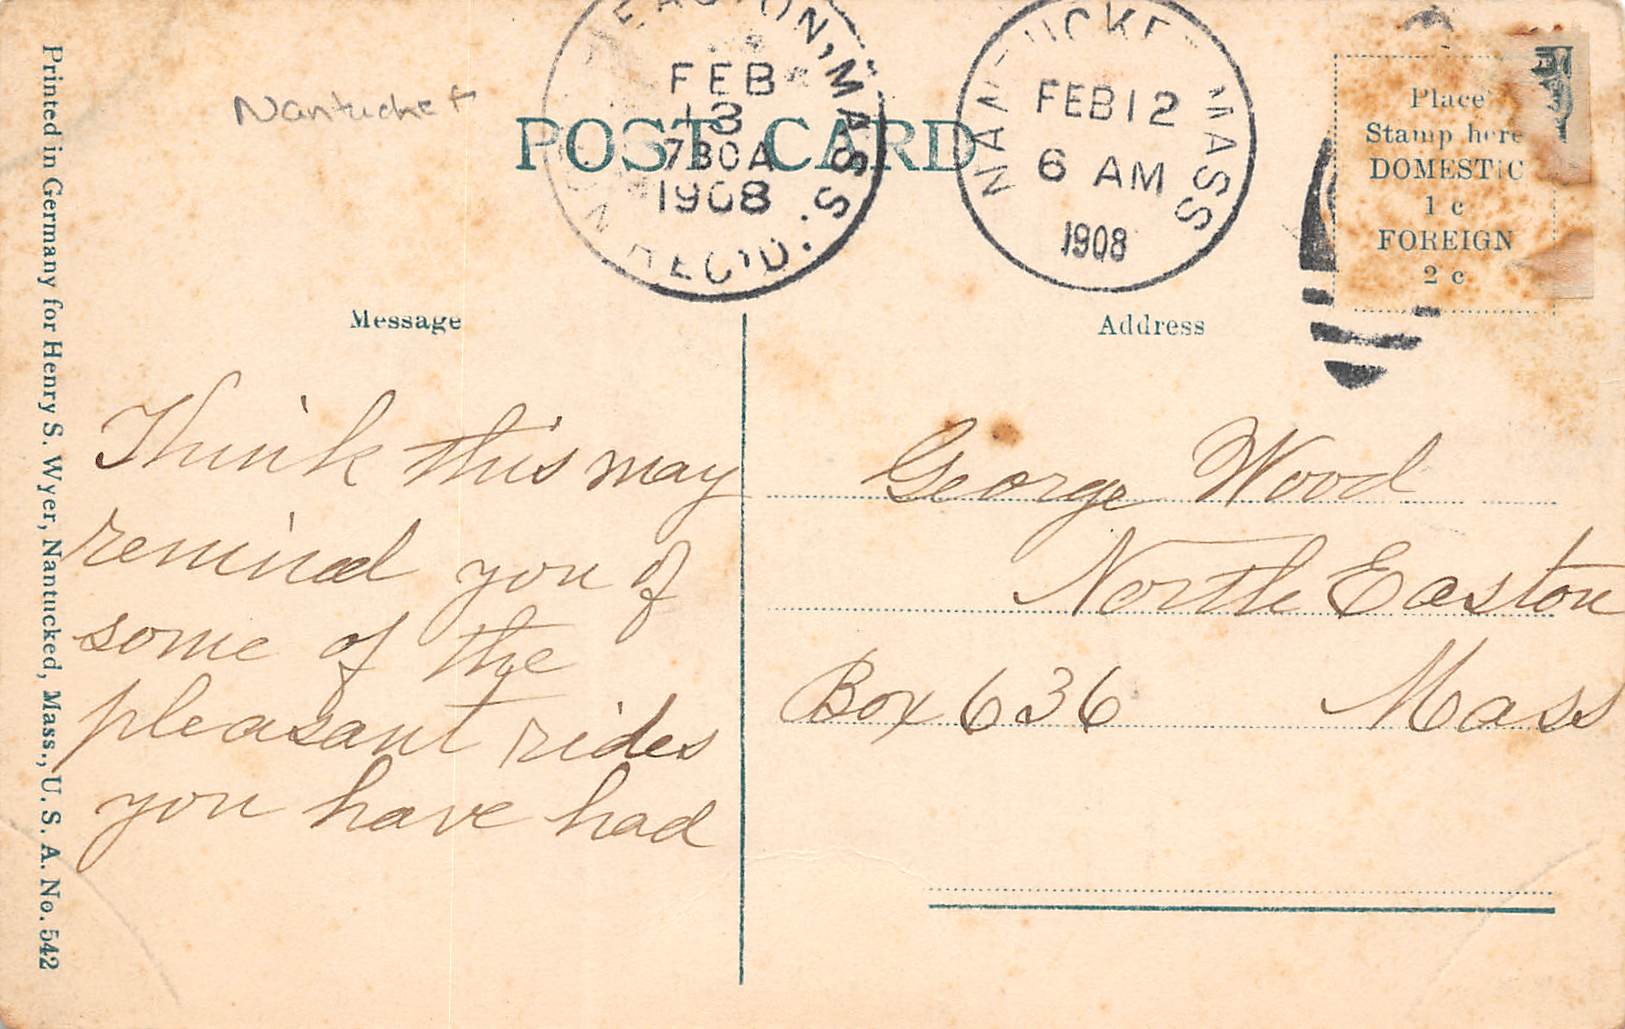 Printed in Germany for Henry S. Wyer, Nantucked, Mass., U. S. A. No. 542
Nantucket
POST CARD
EASTON, MASS.
FEB
13
730A
1908
REC'D.
NANTUCKET MASS
FEB 12
6 AM
1908
Place
Stamp here
DOMESTIC
1 c
FOREIGN
2 c
Message
Think this may
remind you of
some of the
pleasant rides
you have had
Address
George Wood
North Easton
Box 636 Mass